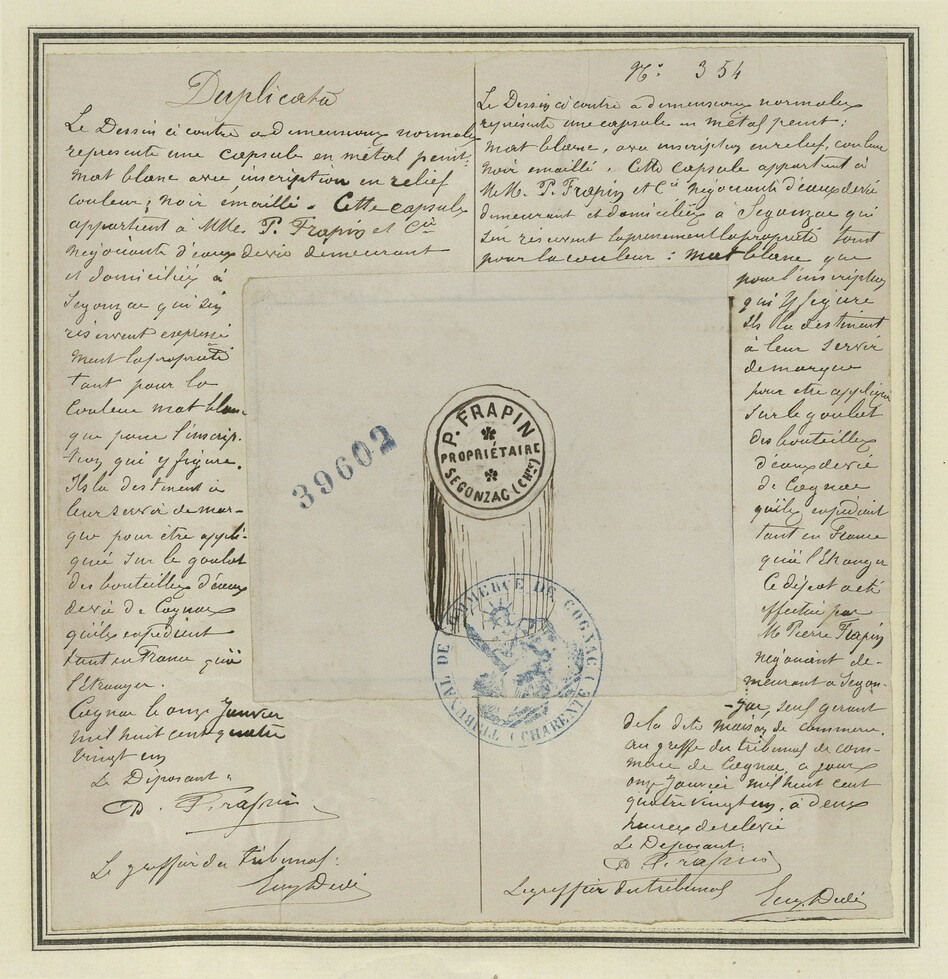 Duplicata
Le Dessin ci contre a dimensions normales
represente une capsule en métal peint:
mat blanc avec inscription en relief
couleur; noir émaillé. Cette capsule
appartient à MMs. P. Frapin et Cie
négociants d'eaux de vie demeurant
et domiciliés à
Segonzac qui s'en
réservent expressé
ment la propriété
tant pour la
couleur mat blanc
que pour l'inscrip-
tion qui y figure.
Ils la destinent à
leur servir de mar-
que pour être appli-
quée sur le goulot
des bouteilles d'eaux
de vie de Cognac
qu'ils expédient
tant en France qu'à
l'Etranger.
Cognac le onze Janvier
mil huit cent quatre
vingt un
Le Déposant.
P. Frapin
Le greffier du tribunal:
No. 354
Le Dessin ci contre a dimensions normales
représente une capsule en métal peint:
mat blanc, avec inscription en relief, couleur
noir émaillé. Cette capsule appartient à
M.M. P. Frapin et Cie négociants d'eaux de vie
demeurant et domiciliés à Segonzac qui
s'en réservent la propriété tant
pour la couleur: mat blanc que
pour l'inscription
qui y figure
Ils la destinent
à leur servir
de marque
pour etre appliquée
sur le goulot
des bouteilles
d'eaux de vie
de Cognac
qu'ils expédient
tant en France
qu'à l'Etranger
Ce dépot a été
effectué par
M. Pierre Frapin
négociant de-
meurant a Segon-
-zac, seul gerant
de la dite maison de commerce.
au greffe du tribunal de com-
merce de Cognac, a jours
onze Janvier mil huit cent
quatre vingt un, à deux
heures de relevée
Le Déposant:
P. Frapin
Le greffier du tribunal
39602
P. FRAPIN
PROPRIÉTAIRE
SEGONZAC (CHte)
TRIBUNAL DE COMMERCE DE COGNAC (CHARENTE)